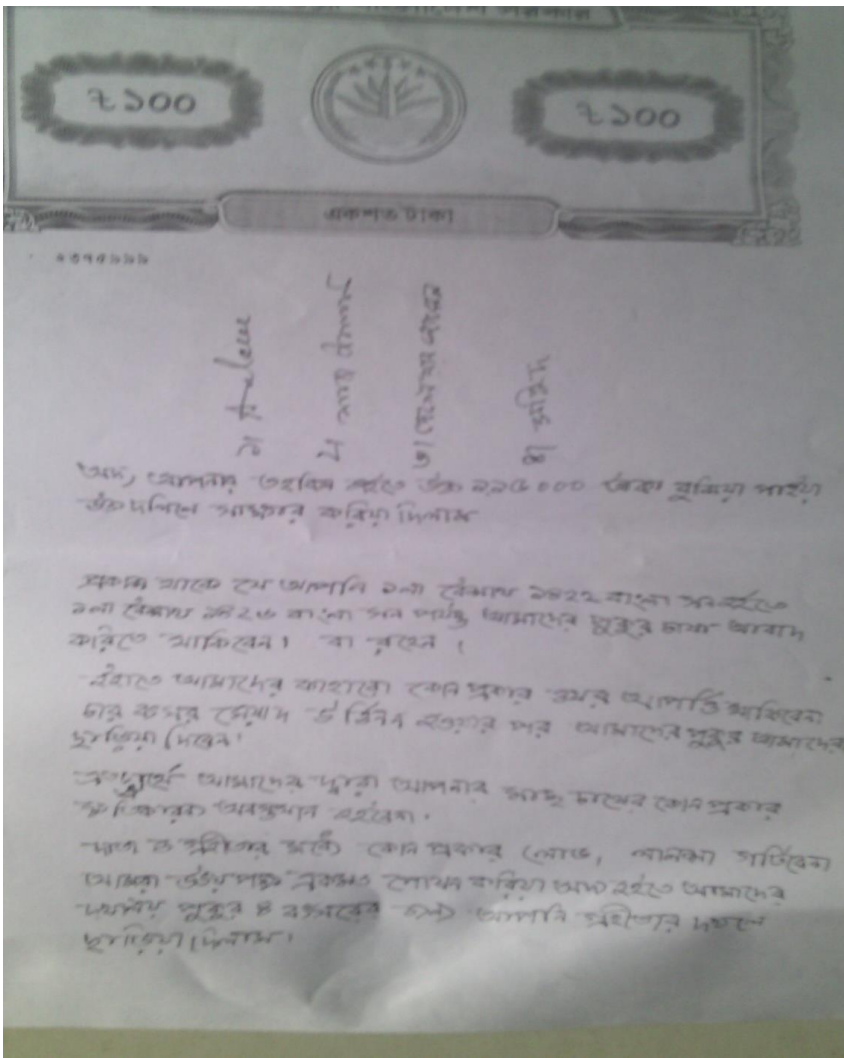 ৳১০০
৳১০০
একশত টাকা
১।
২।
৩।
৪।
অদ্য, আপনার তহবিল হইতে উক্ত ১১৫০০০ টাকা বুঝিয়া পাইয়া
উক্ত দলিলে স্বাক্ষর করিয়া দিলাম
প্রকাশ থাকে যে আপনি ১লা বৈশাখ ১৪২২ বাংলা সন হইতে
১লা বৈশাখ ১৪২৬ বাংলা সন পর্যন্ত আমাদের পুকুর চাষা আবাদ
করিতে থাকিবেন। বা রহেন।
ইহাতে আমাদের কাহারো কোন প্রকার ওযর আপত্তি থাকিবেনা
চার বৎসর মেয়াদ উর্ত্তিনন হওয়ার পর আমাদের পুকুর আমাদের
ছাড়িয়া দিবেন।
আমাদের দ্বারা আপনার মাছ চাষের কোন প্রকার
হইবেনা।
দাতা ও গ্রহীতার মধ্যে কোন প্রকার লোভ, লালসা
আমরা উভয় পক্ষ একমত পোষন করিয়া অদ্য হইতে আমাদের
দখলীয় পুকুর ৪ বৎসরের জন্য আপনি গ্রহীতার দখলে
ছাড়িয়া দিলাম।